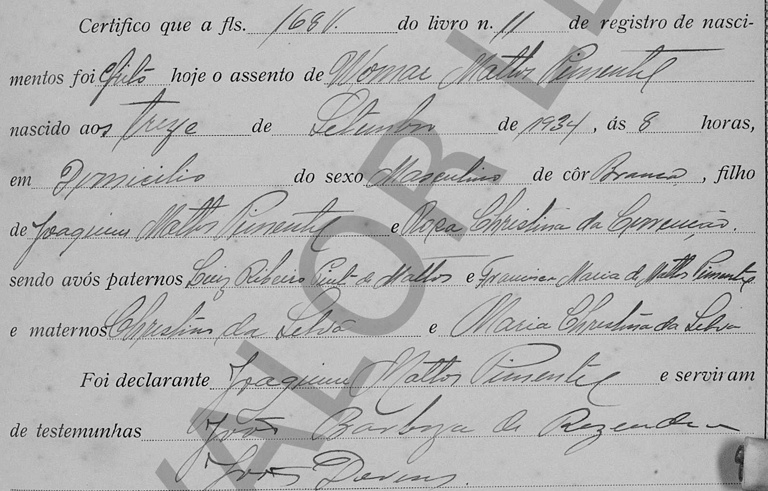 Certifico que a fls. 168V. do livro n. 11 de registro de nasci-
mentos foi feito hoje o assento de Womar Mattos Pimentel
nascido aos treze de Setembro de 1934, ás 8 horas,
em Domicilio do sexo Masculino de côr Branca, filho
de Joaquim Mattos Pimentel e Rosa Christina da Conceição.
sendo avós paternos Luiz Ribeiro Pint. de Mattos e Francisca Maria de Mattos Pimentel
e maternos Christino da Silva e Maria Christina da Silva
Foi declarante Joaquim Mattos Pimentel e serviram
de testemunhas João Barboza de Rezende e
João
VALOR